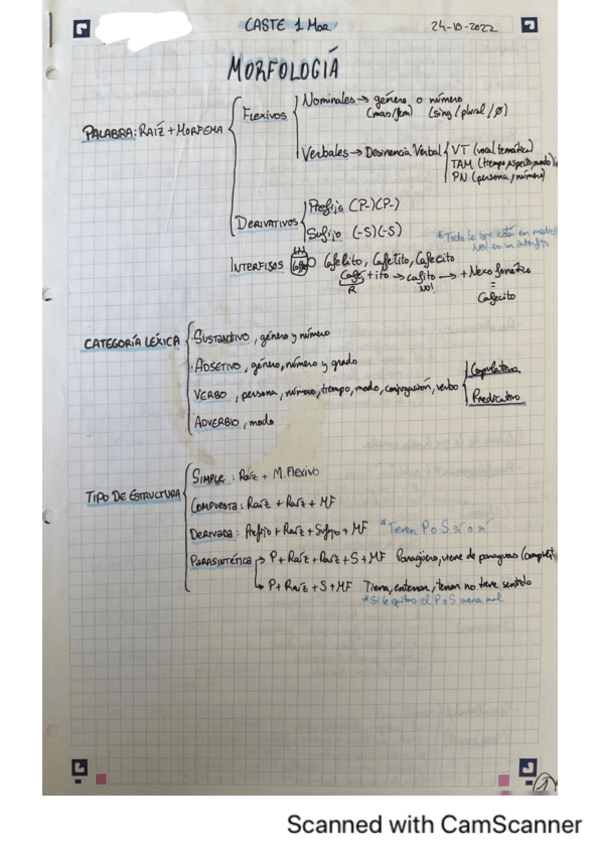 CASTE 1 Mor. 24-10-2022
MORFOLOGÍA
PALABRA: RAÍZ + MORFEMA
FLEXIVOS
Nominales → género o número
(mas/fem) (sing/plural/Ø)
Verbales → Desinencia Verbal
VT (vocal temática)
TAM (tiempo, aspecto, modo)
PN (persona, número)
DERIVATIVOS
Prefijo (P-)(P-)
Sufijo (-S)(-S)
*Todo lo que está en medio
NO! es un interfijo
INTERFISOS Cafelito, Cafetito, Cafecito
Café + ito → cafito → + Nexo fonético
R NO! =
Cafecito
CATEGORÍA LÉXICA
SUSTANTIVO, género y número
ADJETIVO, género, número y grado
VERBO, persona, número, tiempo, modo, conjugación, verbo
Copulativo
Predicativo
ADVERBIO, modo
TIPO DE ESTRUCTURA
SIMPLE: Raíz + M. Flexivo
COMPUESTA: Raíz + Raíz + MF
DERIVADA: Prefijo + Raíz + Sufijo + MF *Tienen P o S sí o sí
PARASINTÉTICA → P + Raíz + Raíz + S + MF Paragüero, viene de paraguas
→ P + Raíz + S + MF Tierra, enterrar, terrar no tiene sentido
*Si le quitas el P o S suena mal
1
Scanned with CamScanner